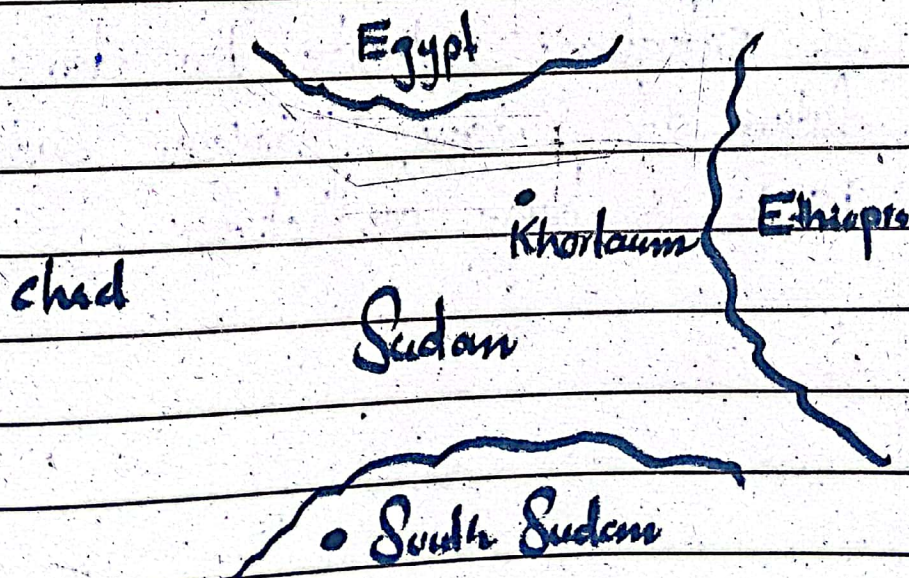 Egypt
Khortaum
Ethiopia
chad
Sudan
South Sudan